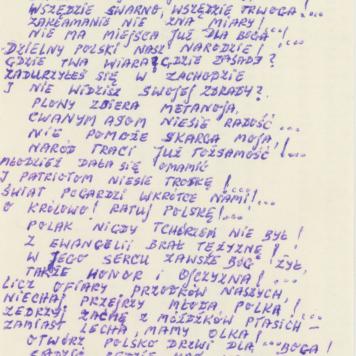 WSZĘDZIE SWARNO, WSZĘDZIE TRWOGA!...
ZAKŁAMANIE NIE ZNA MIARY!
NIE MA MIEJSCA JUŻ DLA BOGA"!
DZIELNY POLSKI NASZ NARODZIE!
GDZIE TWA WIARA? GDZIE ZASADY?
ZADURZYŁEŚ SIĘ W ZACHODZIE
I NIE WIDZISZ SWOJEJ ZDRADY?.
PLONY ZBIERA METANOJA,
CWANYM NIESIE RADOŚĆ...
NIE POMOŻE SKARGA MOJA,
NARÓD TRACI JUŻ TOŻSAMOŚĆ!...
MŁODZIEŻ DAŁA SIĘ OMAMIĆ
I PATRIOTOM NIESIE TROSKĘ!
ŚWIAT POGARDZI WKRÓTCE NAMI!...
O KRÓLOWO! RATUJ POLSKĘ!...
POLAK NIGDY TCHÓRZEM NIE BYŁ!
Z EWANGELII BRAŁ TĘŻYZNĘ!
W JEGO SERCU ZAWSZE BÓG ŻYŁ,
TAKŻE HONOR I OJCZYZNA!
LICZ OFIARY PRZODKÓW NASZYCH,
NIECHAJ PRZEJRZY MŁODA POLKA!
ZEDRZYJ ZAĆMĘ Z MÓŻDŻKÓW PTASICH -
ZAMIAST LECHA, MAMY OLKA!
OTWÓRZ POLSKO DRZWI DLA BOGA!